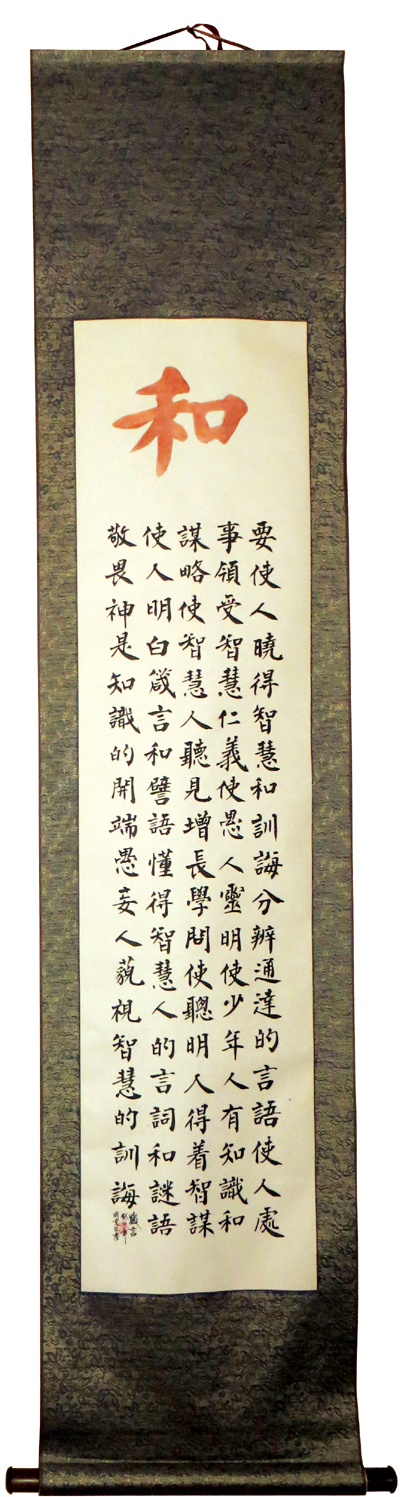 和
要使人曉得智慧和訓誨分辨通達的言語使人處
事領受智慧仁義使愚人靈明使少年人有知識和
謀略使智慧人聽見增長學問使聰明人得着智謀
使人明白箴言和譬語懂得智慧人的言詞和謎語
敬畏神是知識的開端愚妄人藐視智慧的訓誨